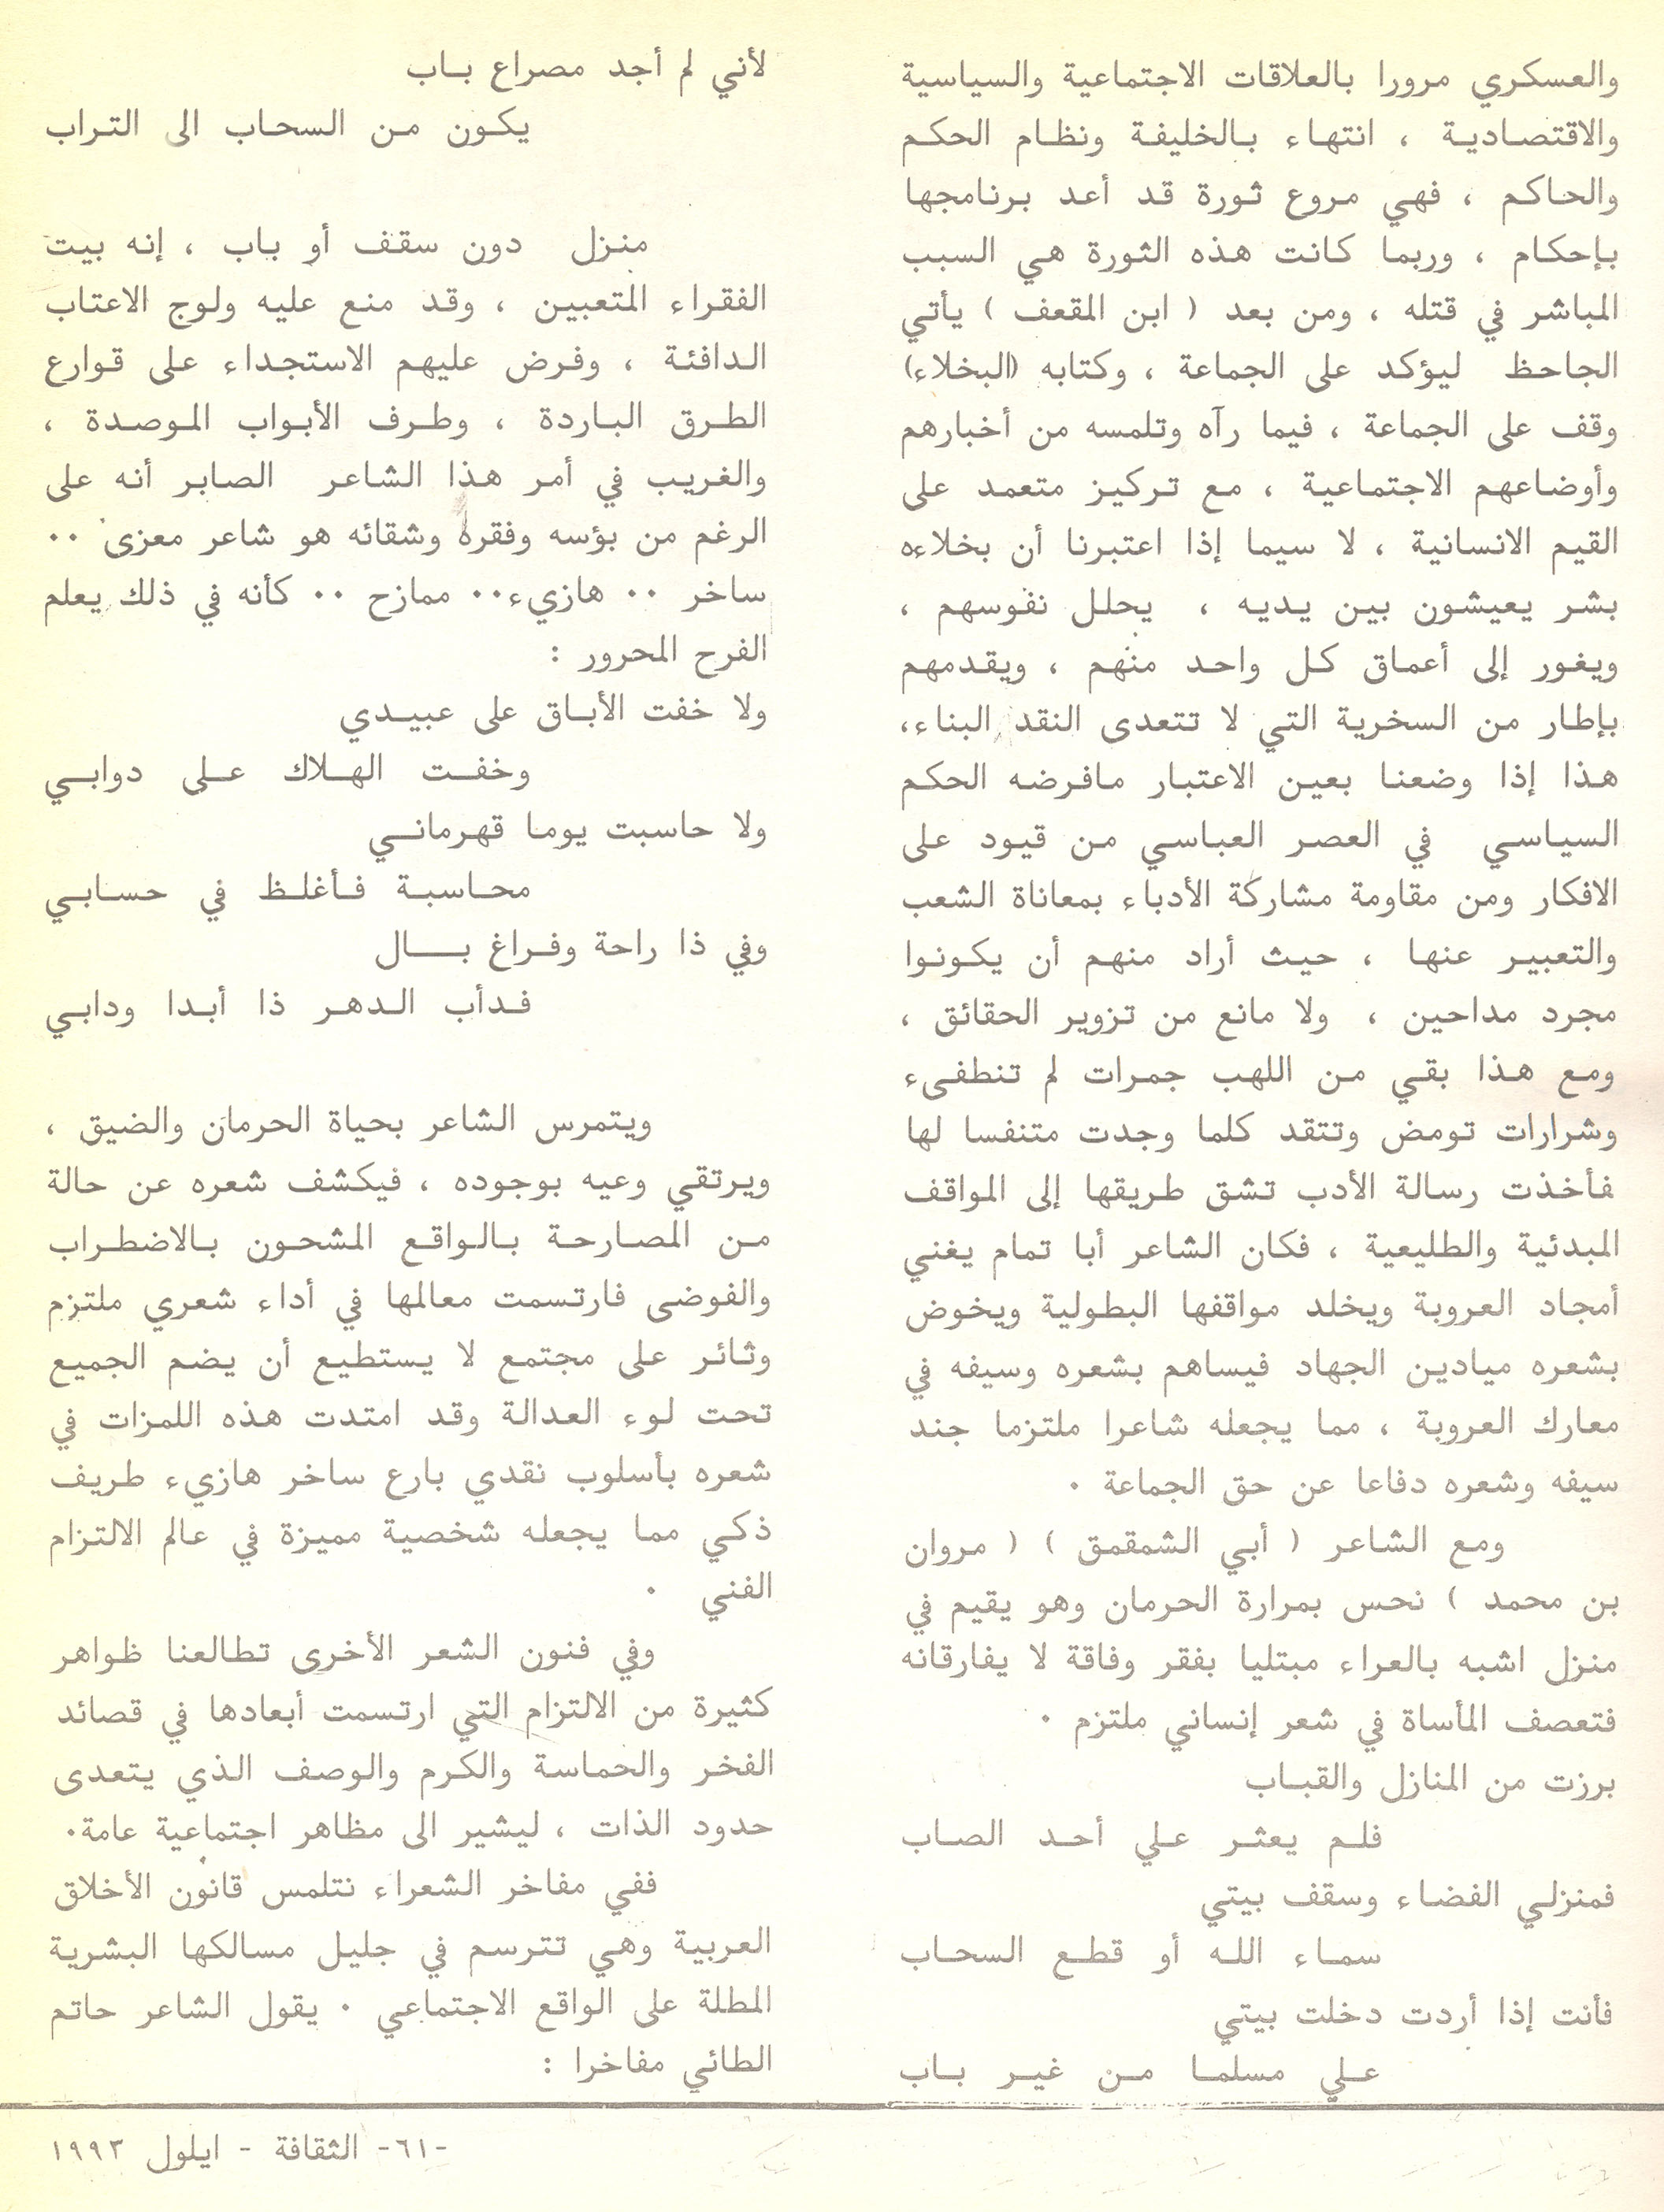 والعسكري مرورا بالعلاقات الاجتماعية والسياسية
والاقتصادية ، انتهاء بالخليفة ونظام الحكم
والحاكم ، فهي مروع ثورة قد أعد برنامجها
بإحكام ، وربما كانت هذه الثورة هي السبب
المباشر في قتله ، ومن بعد ( ابن المقعف ) يأتي
الجاحظ ليؤكد على الجماعة ، وكتابه (البخلاء)
وقف على الجماعة ، فيما رآه وتلمسه من أخبارهم
وأوضاعهم الاجتماعية ، مع تركيز متعمد على
القيم الانسانية ، لا سيما إذا اعتبرنا أن بخلاءه
بشر يعيشون بين يديه ، يحلل نفوسهم ،
ويغور إلى أعماق كل واحد منهم ، ويقدمهم
بإطار من السخرية التي لا تتعدى النقد البناء،
هذا إذا وضعنا بعين الاعتبار مافرضه الحكم
السياسي في العصر العباسي من قيود على
الافكار ومن مقاومة مشاركة الأدباء بمعاناة الشعب
والتعبير عنها ، حيث أراد منهم أن يكونوا
مجرد مداحين ، ولا مانع من تزوير الحقائق ،
ومع هذا بقي من اللهب جمرات لم تنطفىء
وشرارات تومض وتتقد كلما وجدت متنفسا لها
فأخذت رسالة الأدب تشق طريقها إلى المواقف
المبدئية والطليعية ، فكان الشاعر أبا تمام يغني
أمجاد العروبة ويخلد مواقفها البطولية ويخوض
بشعره ميادين الجهاد فيساهم بشعره وسيفه في
معارك العروبة ، مما يجعله شاعرا ملتزما جند
سيفه وشعره دفاعا عن حق الجماعة .
ومع الشاعر ( أبي الشمقمق ) ( مروان
بن محمد ) نحس بمرارة الحرمان وهو يقيم في
منزل اشبه بالعراء مبتليا بفقر وفاقة لا يفارقانه
فتعصف المأساة في شعر إنساني ملتزم .
برزت من المنازل والقباب
فلم يعثر علي أحد الصاب
فمنزلي الفضاء وسقف بيتي
سماء الله أو قطع السحاب
فأنت إذا أردت دخلت بيتي
علي مسلما من غير باب
لأني لم أجد مصراع باب
يكون من السحاب الى التراب
منزل دون سقف أو باب ، إنه بيت
الفقراء المتعبين ، وقد منع عليه ولوج الاعتاب
الدافئة ، وفرض عليهم الاستجداء على قوارع
الطرق الباردة ، وطرف الأبواب الموصدة ،
والغريب في أمر هذا الشاعر الصابر أنه على
الرغم من بؤسه وفقره وشقائه هو شاعر معزى ..
ساخر .. هازيء.. ممازح .. كأنه في ذلك يعلم
الفرح المحرور :
ولا خفت الأباق على عبيدي
وخفت الهلاك على دوابي
ولا حاسبت يوما قهرماني
محاسبة فأغلظ في حسابي
وفي ذا راحة وفراغ بال
فدأب الدهر ذا أبدا ودابي
ويتمرس الشاعر بحياة الحرمان والضيق ،
ويرتقي وعيه بوجوده ، فيكشف شعره عن حالة
من المصارحة بالواقع المشحون بالاضطراب
والفوضى فارتسمت معالمها في أداء شعري ملتزم
وثائر على مجتمع لا يستطيع أن يضم الجميع
تحت لوء العدالة وقد امتدت هذه اللمزات في
شعره بأسلوب نقدي بارع ساخر هازيء طريف
ذكي مما يجعله شخصية مميزة في عالم الالتزام
الفني .
وفي فنون الشعر الأخرى تطالعنا ظواهر
كثيرة من الالتزام التي ارتسمت أبعادها في قصائد
الفخر والحماسة والكرم والوصف الذي يتعدى
حدود الذات ، ليشير الى مظاهر اجتماعية عامة.
ففي مفاخر الشعراء نتلمس قانون الأخلاق
العربية وهي تترسم في جليل مسالكها البشرية
المطلة على الواقع الاجتماعي . يقول الشاعر حاتم
الطائي مفاخرا :
-٦١- الثقافة - ايلول ١٩٩٣